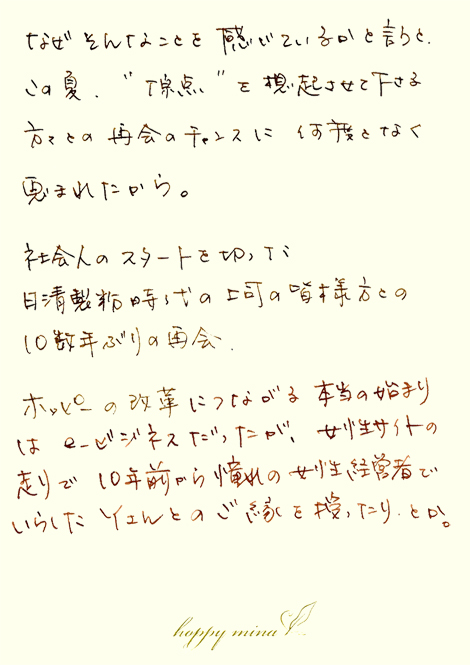 なぜそんなことを感じているかと言うと、
この夏、“原点”を想起させて下さる
方々との再会のチャンスに何度となく
恵まれたから。
社会人のスタートを切った
日清製粉時代の上司の皆様方との
10数年ぶりの再会、
ホッピーの改革につながる本当の始まり
は e-ビジネスだったが、女性サイトの
走りで10年前から憧れの女性経営者で
いらしたYさんとのご縁を授ったり、とか。
hoppy mina